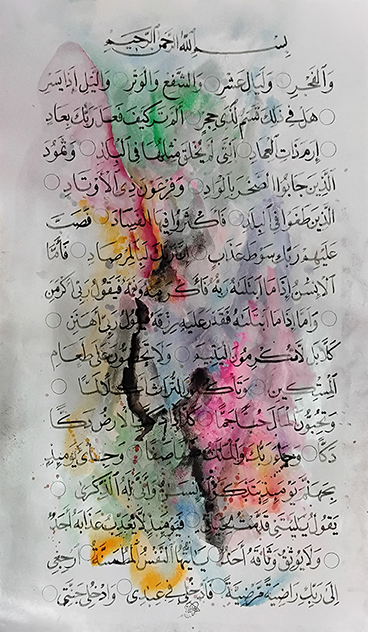 بسم الله الرحمن الرحيم
والفجر ○ وليال عشر ○ والشفع والوتر ○ واليل إذا يسر
○ هل في ذلك قسم لذى حجر ○ ألم تر كيف فعل ربك بعاد
○ إرم ذات العماد ○ التى لم يخلق مثلها في البلاد ○ وثمود
الذين جابوا الصخر بالواد ○ وفرعون ذى الأوتاد ○
الذين طغوا في البلاد ○ فأكثروا فيها الفساد ○ فصب
عليهم ربك سوط عذاب ○ إن ربك لبالمرصاد ○ فأما
الإنسن إذا ما ابتله ربه فأكرمه ونعمه فيقول ربى أكرمن
○ وأما إذا ما ابتله فقدر عليه رزقه فيقول ربى أهنن ○
كلا بل لا تكرمون اليتيم ○ ولا تحضون على طعام
المسكين ○ وتأكلون التراث أكلا لما ○
وتحبون المال حبا جما ○ كلا إذا دكت الأرض دكا
دكا ○ وجاء ربك والملك صفا صفا ○ وجاىء يومئذ
بجهنم يومئذ يتذكر الإنسن وأنى له الذكرى ○
يقول يليتنى قدمت لحياتى ○ فيومئذ لا يعذب عذابه أحد
○ ولا يوثق وثاقه أحد ○ يأيتها النفس المطمئنة ○ ارجعى
إلى ربك راضية مرضية ○ فادخلى في عبدى ○ وادخلى جنتى ○